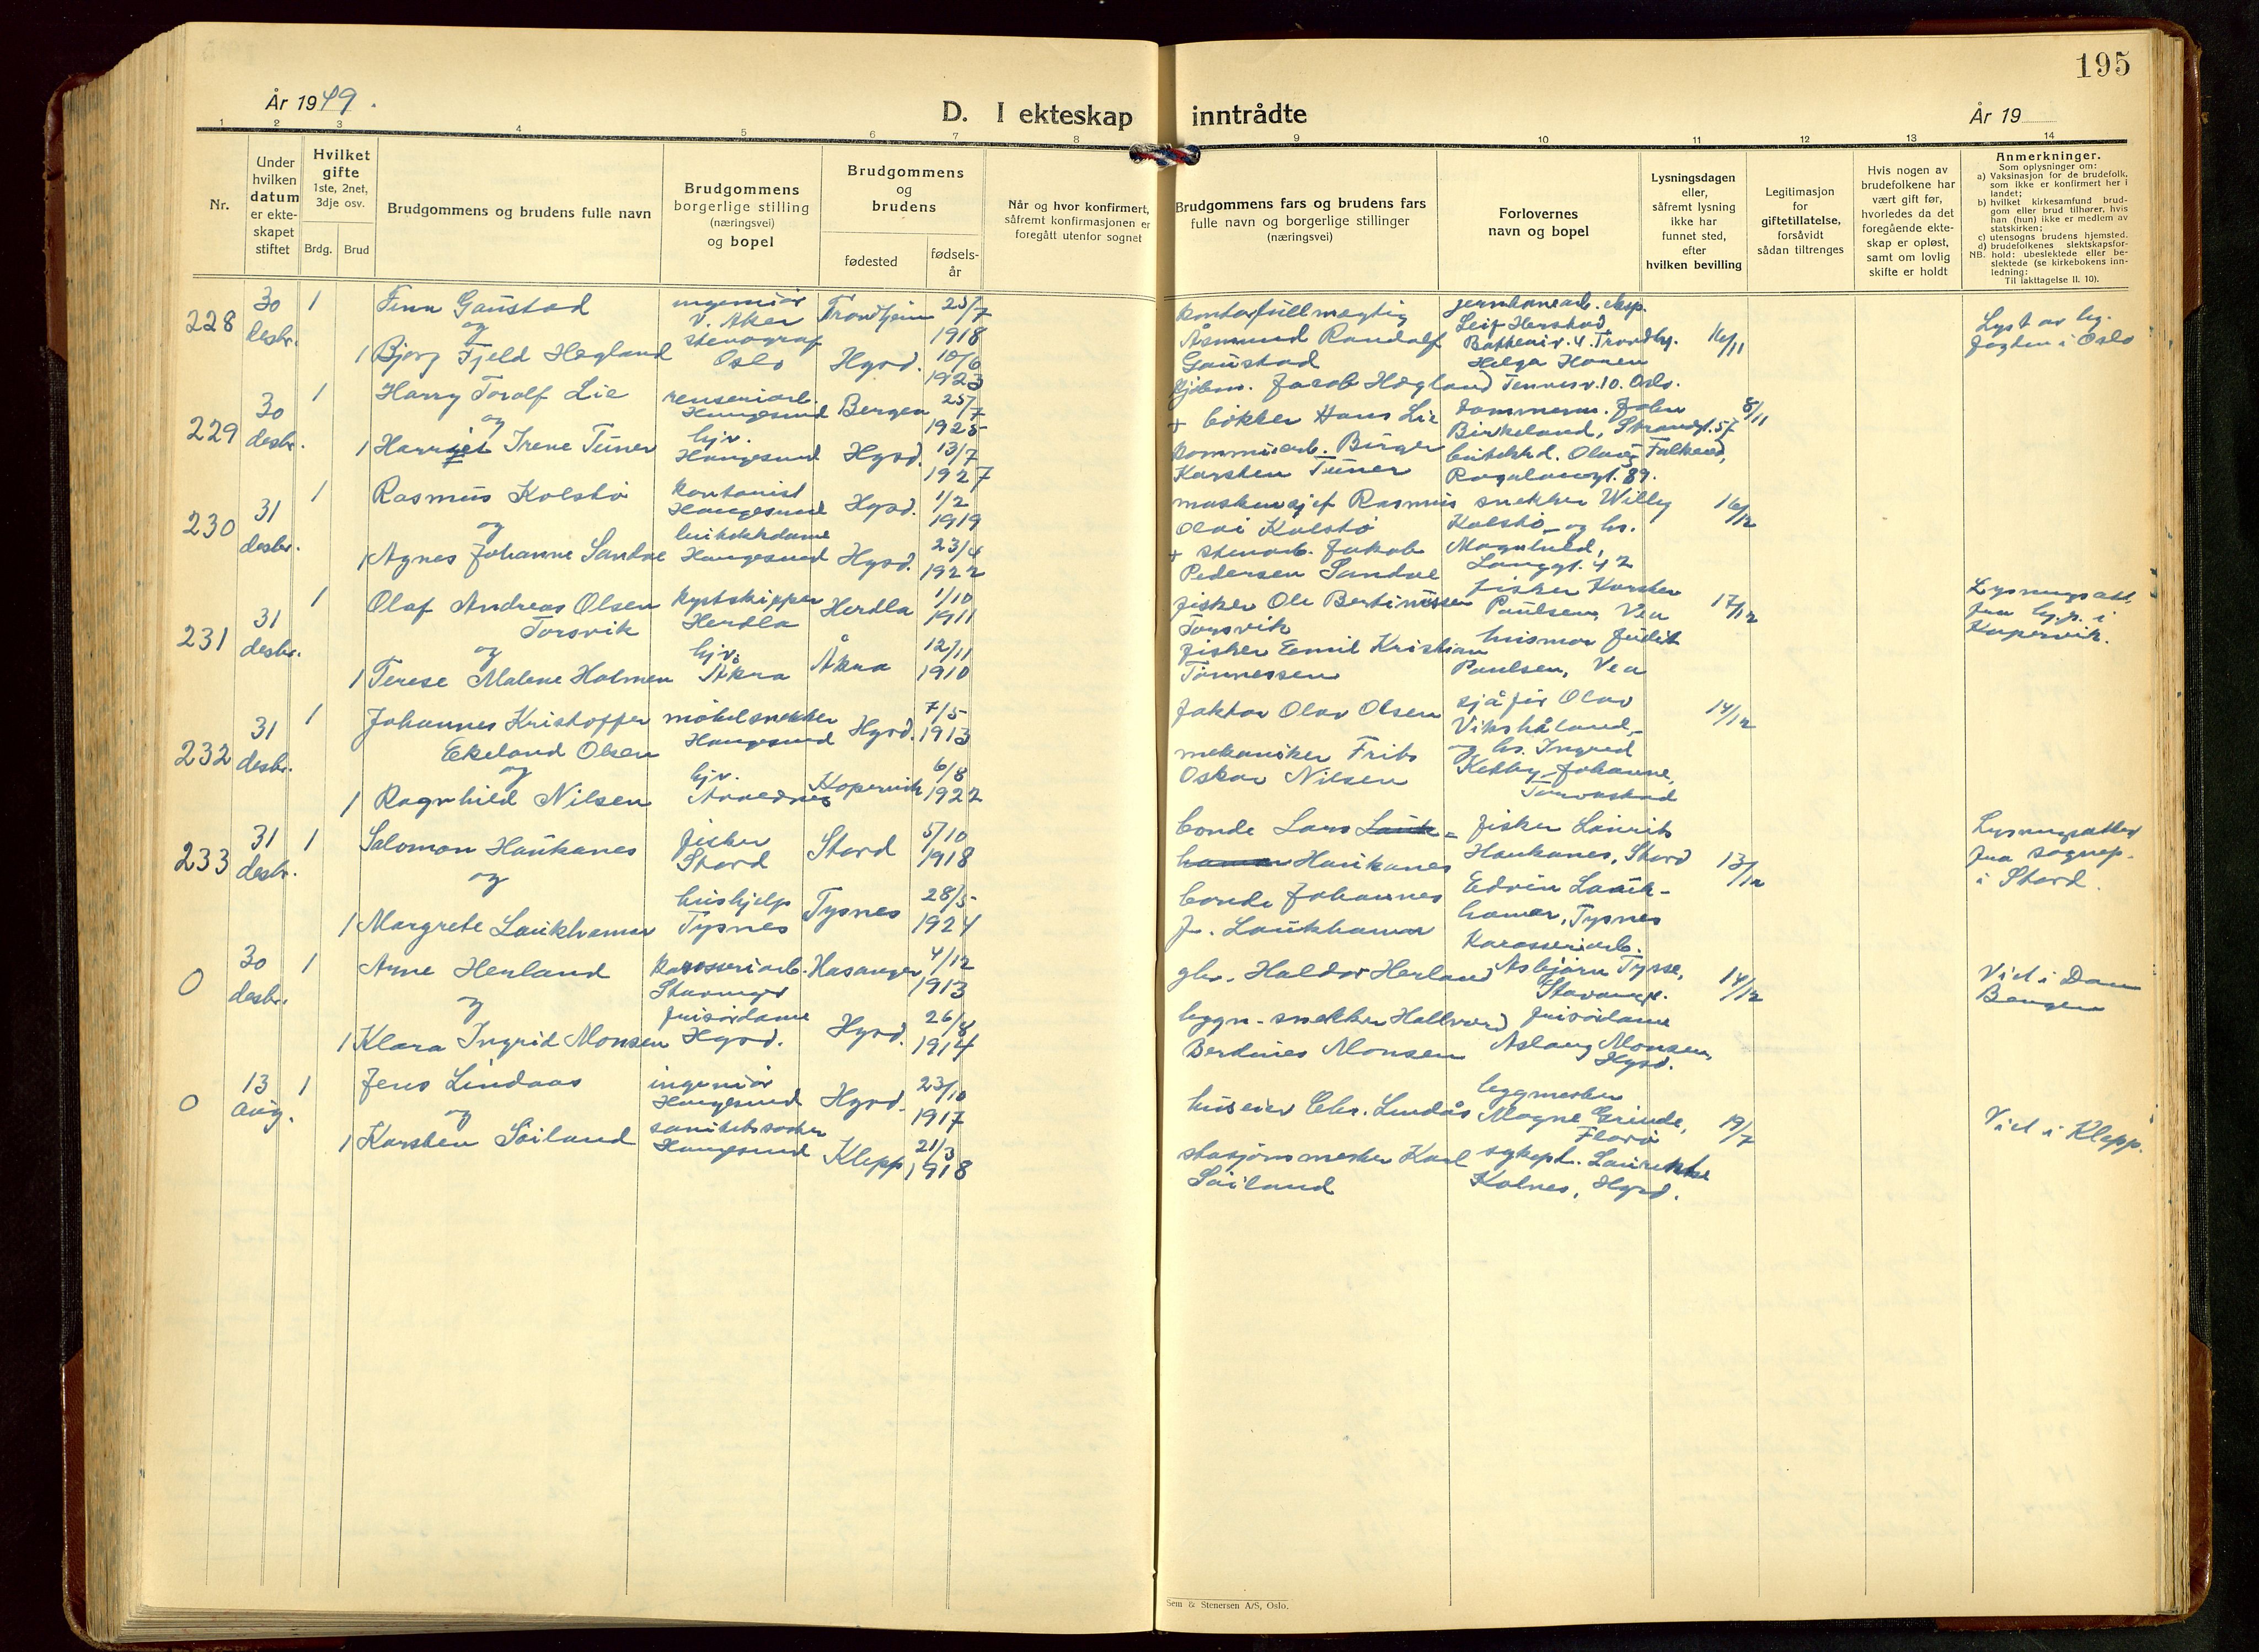 195
År 1949.
D. I ekteskap inntrådte
År 19
1 2 3 4 5 6 7 8 9 10 11 12 13 14
Nr.
Under hvilken datum er ekte-skapet stiftet
Hvilket gifte 1ste, 2net, 3dje osv.
Brdg. Brud
Brudgommens og brudens fulle navn
Brudgommens borgerlige stilling (næringsvei) og bopel
Brudgommens og brudens
fødested
fødsels-år
Når og hvor konfirmert, såfremt konfirmasjonen er foregått utenfor sognet
Brudgommens fars og brudens fars fulle navn og borgerlige stillinger (næringsvei)
Forlovernes navn og bopel
Lysningsdagen eller, såfremt lysning ikke har funnet sted, efter hvilken bevilling
Legitimasjon for giftetillatelse, forsåvidt sådan tiltrenges
Hvis nogen av brudefolkene har vært gift før, hvorledes da det foregående ekte-skap er opløst, samt om lovlig skifte er holdt
Anmerkninger.
Som oplysninger om:
a) Vaksinasjon for de brudefolk, som ikke er konfirmert her i landet;
b) hvilket kirkesamfund brud-gom eller brud tilhører, hvis han (hun) ikke er medlem av statskirken;
c) utensogns brudens hjemsted.
d) brudefolkenes slektskapsfor-hold: ubeslektede eller be-slektede (se kirkebokens inn-ledning:
NB. Til iakttagelse II. 10).
228 30 desbr. 1 Finn Gaustad ingeniør V. Aker Trondhjem 25/7 1918
og
1 Bjørg Fjeld Hegland stenograf Oslo Hgsd. 10/6 1923
kontorfullmegtig Åsmund Randolf Gaustad
kjøbm. Jacob Hegland
Leif Herstad, Helga Hanen Tennesv. 10. Oslo.
16/11
Lyst av i Oslo
229 30 desbr. 1 Harry Torolf Lie renseriarb. Haugesund Bergen 25/7 1925
og
1 Harriet Irene Tuner hjv. Haugesund Hgsd. 13/7 1927
+ bøkker Hans Lie
kommunarb. Birger Karsten Tuner
Birkeland, Strandgt. 57
butikkd. Olaug Falkeid, Rogalandgt. 89.
8/11
230 31 desbr. 1 Rasmus Kolstø kontorist Haugesund Hgsd. 1/2 1919
og
1 Agnes Johanne Sandve butikkdame Haugesund Hgsd. 23/4 1922
maskinsjef Rasmus Olai Kolstø
+ stenarb. Jakob Pedersen Sandve
snekker Willy Kolstø - og hs. Magnhild, Langgt. 42
16/12
231 31 desbr. 1 Olaf Andreas Olsen Torsvik kystskipper Herdla Herdla 1/10 1911
og
1 Terese Malene Holmen hjv. Åkra Åkra 12/11 1910
fisker Ole Bertinussen Torsvik
fisker Emil Kristian Tønnessen
fisker Karsten Paulsen, Vea
husmor Judit Paulsen, Vea
17/12
Lysningsatt. fra i Kopervik.
232 31 desbr. 1 Johannes Kristoffer Ekeland Olsen møbelsnekker Haugesund Hgsd. 7/5 1913
og
1 Ragnhild Nilsen hjv. Kopervik 6/8 1922
faktor Olav Olsen
mekaniker Frits Oskar Nilsen
sjåfør Olav Vikshåland - og hs. Ingred Ketty Johanne, Torvastad
14/12
233 31 desbr. 1 Salomon Haukanes fisker Stord Stord 5/10 1918
og
1 Margrete Laukhamar hushjelp Tysnes Tysnes 28/5 1924
bonde Lars Lauk-hamar Haukanes
bonde Johannes J. Laukhamar
fisker Laurits Haukanes, Stord
Edvin Laukhamar, Tysnes
13/12
Lysningsattest fra sognep. i Stord.
0 30 desbr. 1 Arne Herland karosseriarb. Stavanger 4/12 1913
og
1 Klara Ingrid Monsen frisørdame Hgsd. Hgsd. 26/8 1914
Haldor Herland
byggn.-snekker Hallvard Berdines Monsen
Karosseriarb. Asbjørn Tysse, Stavanger.
frisørdame Aslaug Monsen, Hgsd.
14/12
Viet i Bergen
0 13 aug. 1 Jens Lindaas ingeniør Haugesund Hgsd. 23/10 1917
og
1 Karsten Søiland sanitetssøster Haugesund Klepp 21/3 1918
huseier Chr. Lindås
stasjonsmester Karl Søiland
byggmester Magne Grinde, Florø
sykepl. Laurentse Kolnes, Hgsd.
19/7
Viet i Klepp.
Sem & Stenersen A/S, Oslo.